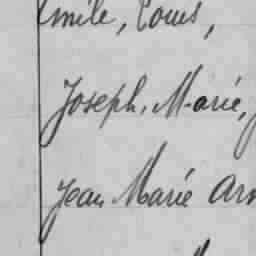 Emile, Louis,
Joseph, Marie,
Jean Marie